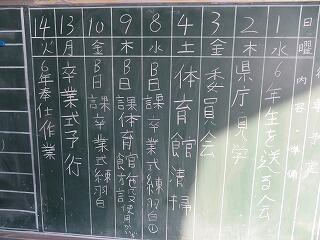 日 曜
1 水 6年生を送る会
2 木 県庁見学
3 金 委員会
4 土 体育館清掃
8 水 B日課 卒業式練習①
9 木 B日課 体育館
10 金 B日課 卒業式練習
13 月 卒業式予行
14 火 6年奉仕作業